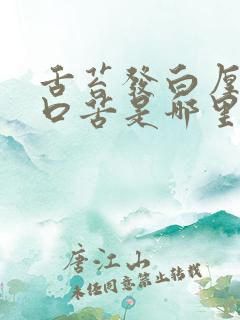 舌苔發白厚
口苦是哪里
唐江山
未经同意禁止转载